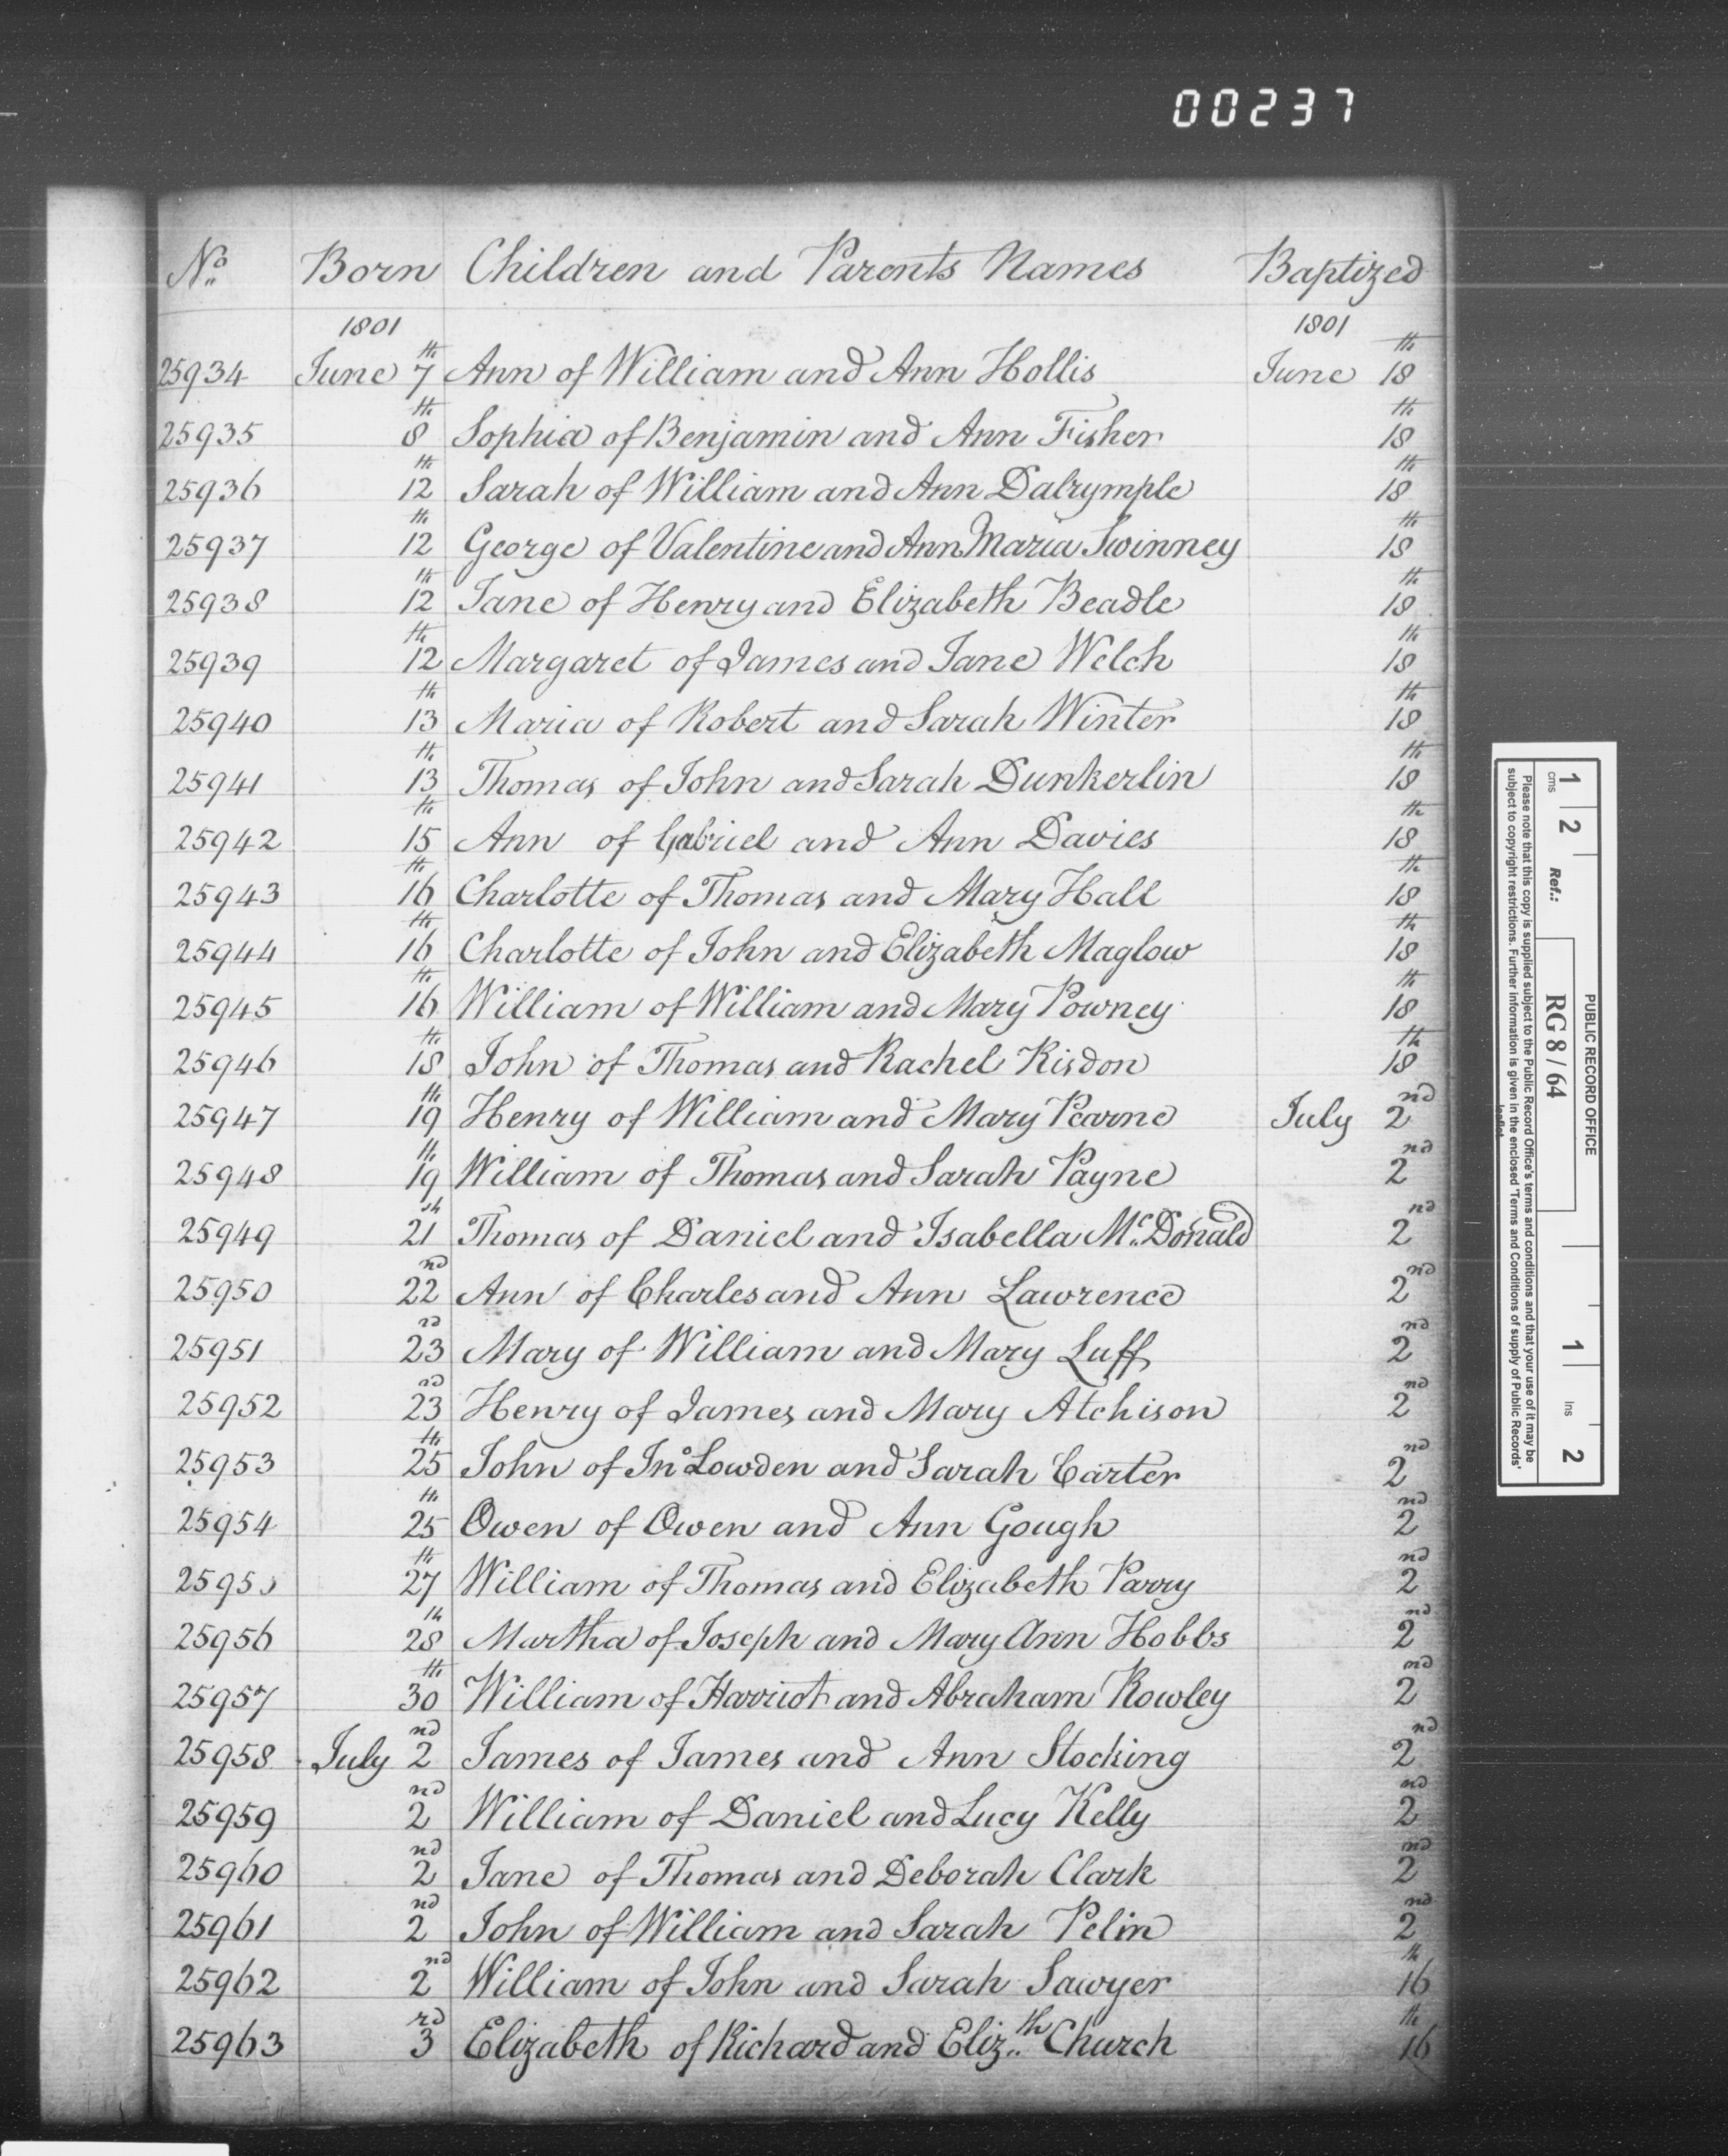 00237
No. Born Children and Parents Names Baptized
1801 1801
25934 June 7th Ann of William and Ann Hollis June 18th
25935 8th Sophia of Benjamin and Ann Fisher 18th
25936 12th Sarah of William and Ann Dalrymple 18th
25937 12th George of Valentine and Ann Maria Swinney 18th
25938 12th Jane of Henry and Elizabeth Beadle 18th
25939 12th Margaret of James and Jane Welch 18th
25940 13th Maria of Robert and Sarah Winter 18th
25941 13th Thomas of John and Sarah Dunkerlin 18th
25942 15th Ann of Gabriel and Ann Davies 18th
25943 16th Charlotte of Thomas and Mary Hall 18th
25944 16th Charlotte of John and Elizabeth Maglow 18th
25945 16th William of William and Mary Powney 18th
25946 18th John of Thomas and Rachel Risdon 18th
25947 19th Henry of William and Mary Pearne July 2nd
25948 19th William of Thomas and Sarah Payne 2nd
25949 21st Thomas of Daniel and Isabella Mc.Donald 2nd
25950 22nd Ann of Charles and Ann Lawrence 2nd
25951 23rd Mary of William and Mary Luff 2nd
25952 23rd Henry of James and Mary Atchison 2nd
25953 25th John of Jno Lowden and Sarah Carter 2nd
25954 25th Owen of Owen and Ann Gough 2nd
25955 27th William of Thomas and Elizabeth Parry 2nd
25956 28th Martha of Joseph and Mary Ann Hobbs 2nd
25957 30th William of Harriot and Abraham Rowley 2nd
25958 July 2nd James of James and Ann Stocking 2nd
25959 2nd William of Daniel and Lucy Kelly 2nd
25960 2nd Jane of Thomas and Deborah Clark 2nd
25961 2nd John of William and Sarah Pelin 2nd
25962 2nd William of John and Sarah Sawyer 16th
25963 3rd Elizabeth of Richard and Eliz.th Church 16th
PUBLIC RECORD OFFICE
1 2 Ref.: RG 8 / 64 1 2
cms ins
Please note that this copy is supplied subject to the Public Record Office's terms and conditions and that your use of it may be
subject to copyright restrictions. Further information is given in the enclosed 'Terms and Conditions of supply of Public Records'